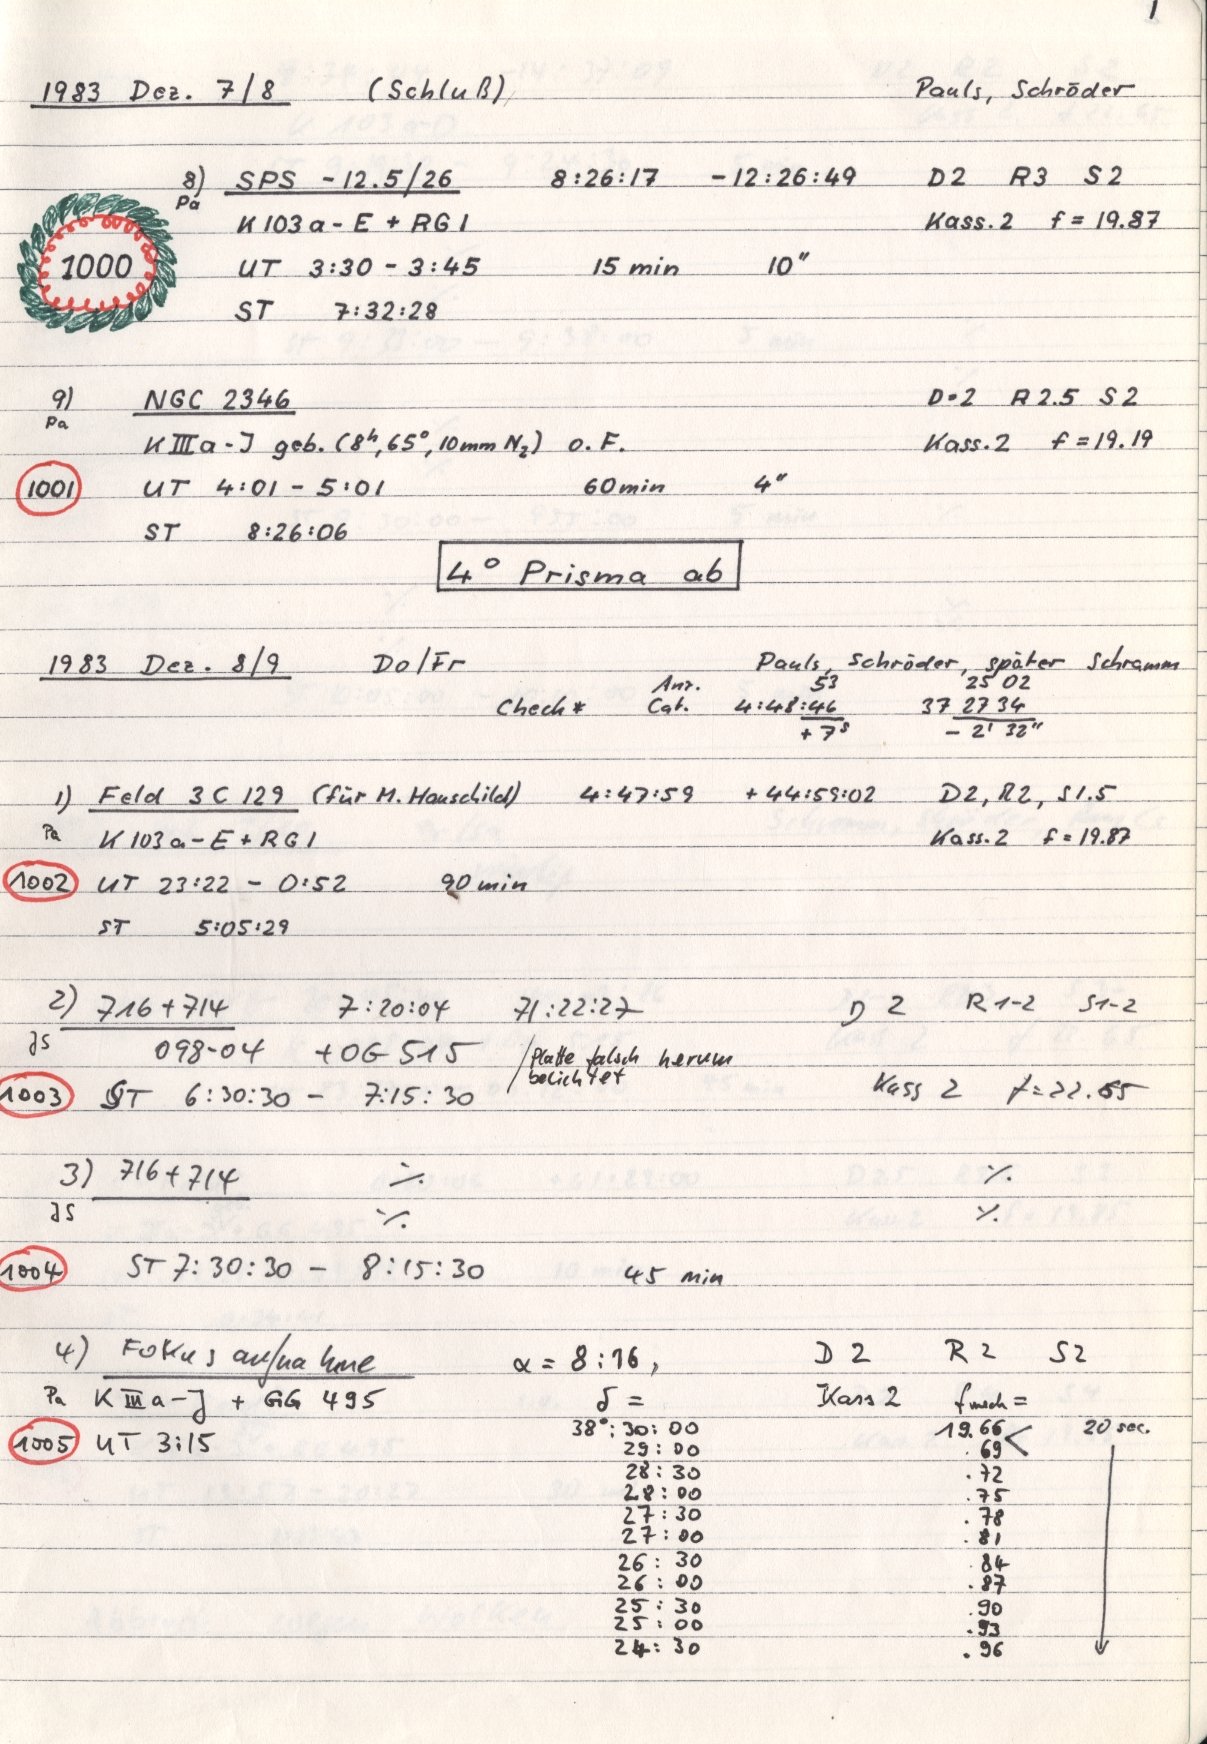 1
1983 Dez. 7/8 (Schluß) Pauls, Schröder
8) SPS -12.5/26 8:26:17 -12:26:49 D2 R3 S2
Pa K 103a-E + RG1 Kass.2 f = 19.87
1000 UT 3:30 - 3:45 15 min 10"
ST 7:32:28
9) NGC 2346 D•2 R 2.5 S2
Pa K IIIa-J geb. (8h, 65°, 10mm N2) o.F. Kass.2 f = 19.19
1001 UT 4:01 - 5:01 60min 4"
ST 8:26:06
4° Prisma ab
1983 Dez. 8/9 Do/Fr Pauls, Schröder, später Schramm
Anz. 53 25 02
Check* Cat. 4:48:46 37 27 34
+7s - 2' 32"
1) Feld 3C 129 (für M. Hauschild) 4:47:59 +44:59:02 D2, R2, S1.5
Pa K 103a-E + RG1 Kass.2 f = 19.87
1002 UT 23:22 - 0:52 90 min
ST 5:05:29
2) 716+714 7:20:04 71:22:27 D 2 R 1-2 S1-2
JS 098-04 +OG 515 / Platte falsch herum
belichtet
1003 ST 6:30:30 - 7:15:30 Kass 2 f=22.65
3) 716+714 ·/. ·/.
JS ·/. ·/.
1004 ST 7:30:30 - 8:15:30 45 min
4) Fokusaufnahme α = 8:16, D 2 R 2 S2
Pa K IIIa-J + GG 495 δ = Kass 2 =
1005 UT 3:15 38°:30:00 19.66 20 sec.
29:00 .69
28:30 .72
28:00 .75
27:30 .78
27:00 .81
26:30 .84
26:00 .87
25:30 .90
25:00 .93
24:30 .96